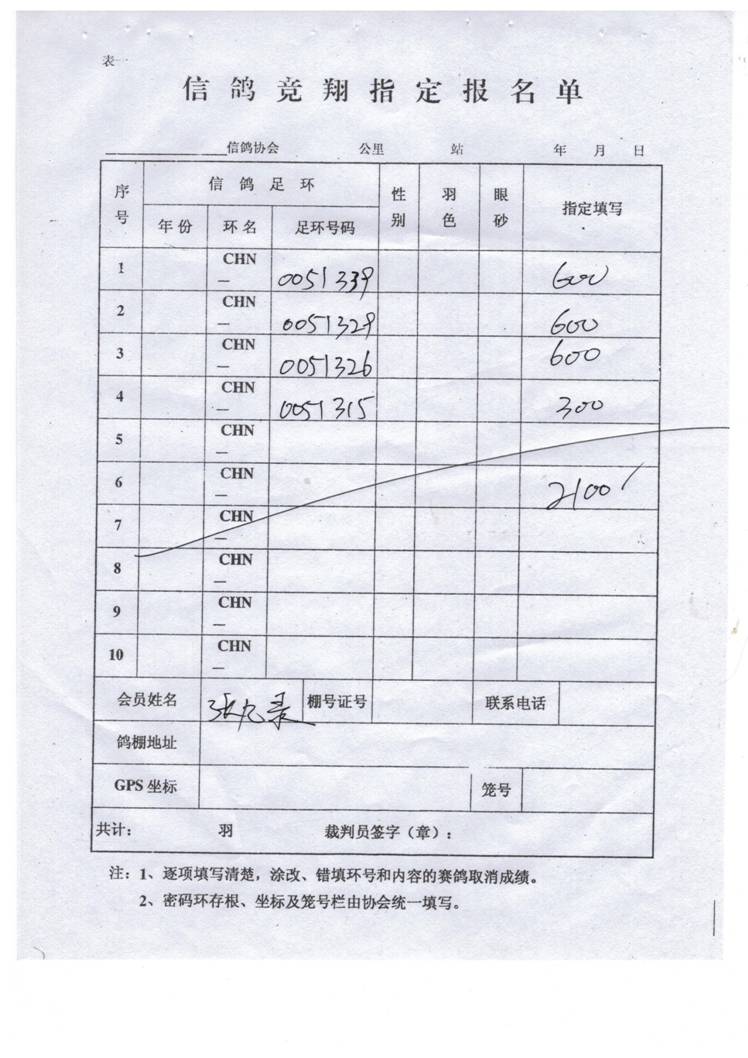 表一
信鸽竞翔指定报名单
信鸽协会 公里 站 年 月 日
序号 信鸽足环 性别 羽色 眼砂 指定填写
年份 环名 足环号码
1 CHN — 0051339 600
2 CHN — 0051329 600
3 CHN — 0051326 600
4 CHN — 0051315 300
5 CHN —
6 CHN — 2100
7 CHN —
8 CHN —
9 CHN —
10 CHN —
会员姓名 张 录 棚号证号 联系电话
鸽棚地址
GPS 坐标 笼号
共计: 羽 裁判员签字（章）:
注: 1、逐项填写清楚，涂改、错填环号和内容的赛鸽取消成绩。
2、密码环存根、坐标及笼号栏由协会统一填写。